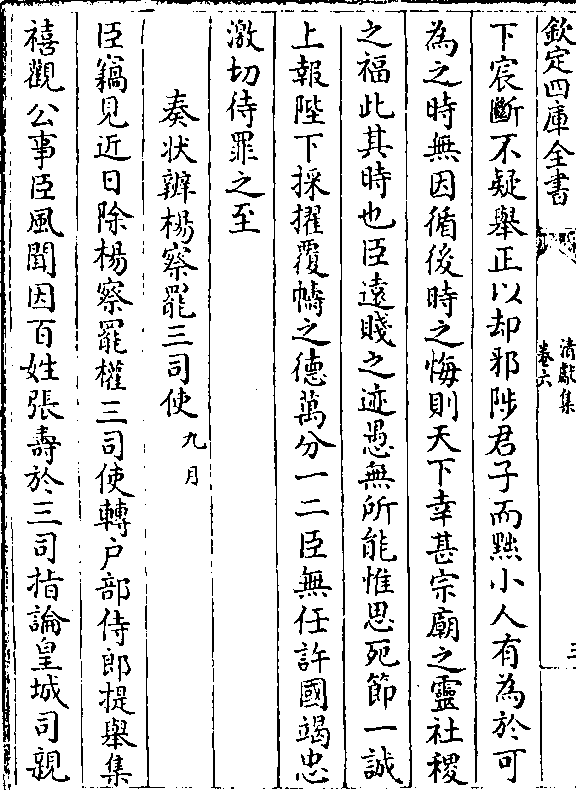 欽定四庫全書
清獻集
卷六
三
下宸斷不疑舉正以却邪陟君子而黜小人有為於可
為之時無因循後時之悔則天下幸甚宗廟之靈社稷
之福此其時也臣遠賤之迹愚無所能惟思死節一誠
上報陛下採擢覆幬之德萬分一二臣無任許國竭忠
激切待罪之至
奏状辨楊察罷三司使九月
臣竊見近日除楊察罷權三司使轉户部侍郎提舉集
禧觀公事臣風聞因百姓張壽於三司指論皇城司親